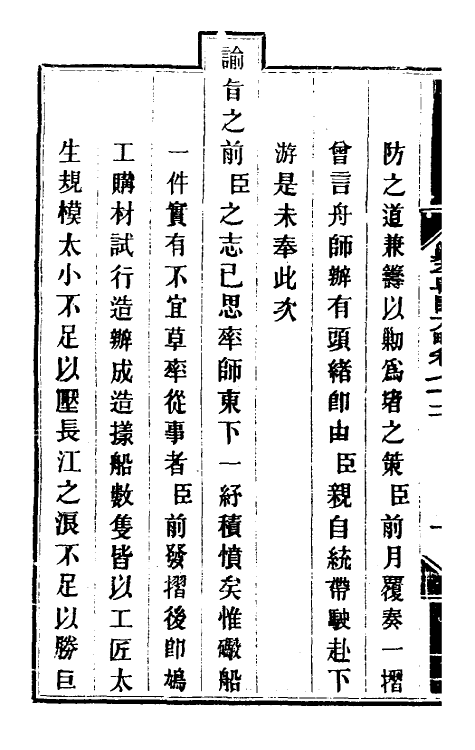 防之道兼籌以勦為堵之策臣前月覆奏一摺
曾言舟師辦有頭緒即由臣親自統帶駛赴下
游是未奉此次
諭旨之前臣之志已思率師東下一紓積憤矣惟礮船
一件實有不宜草率從事者臣前發摺後即鳩
工購材試行造辦成造樣船數隻皆以工匠太
生規模太小不足以壓長江之浪不足以勝巨